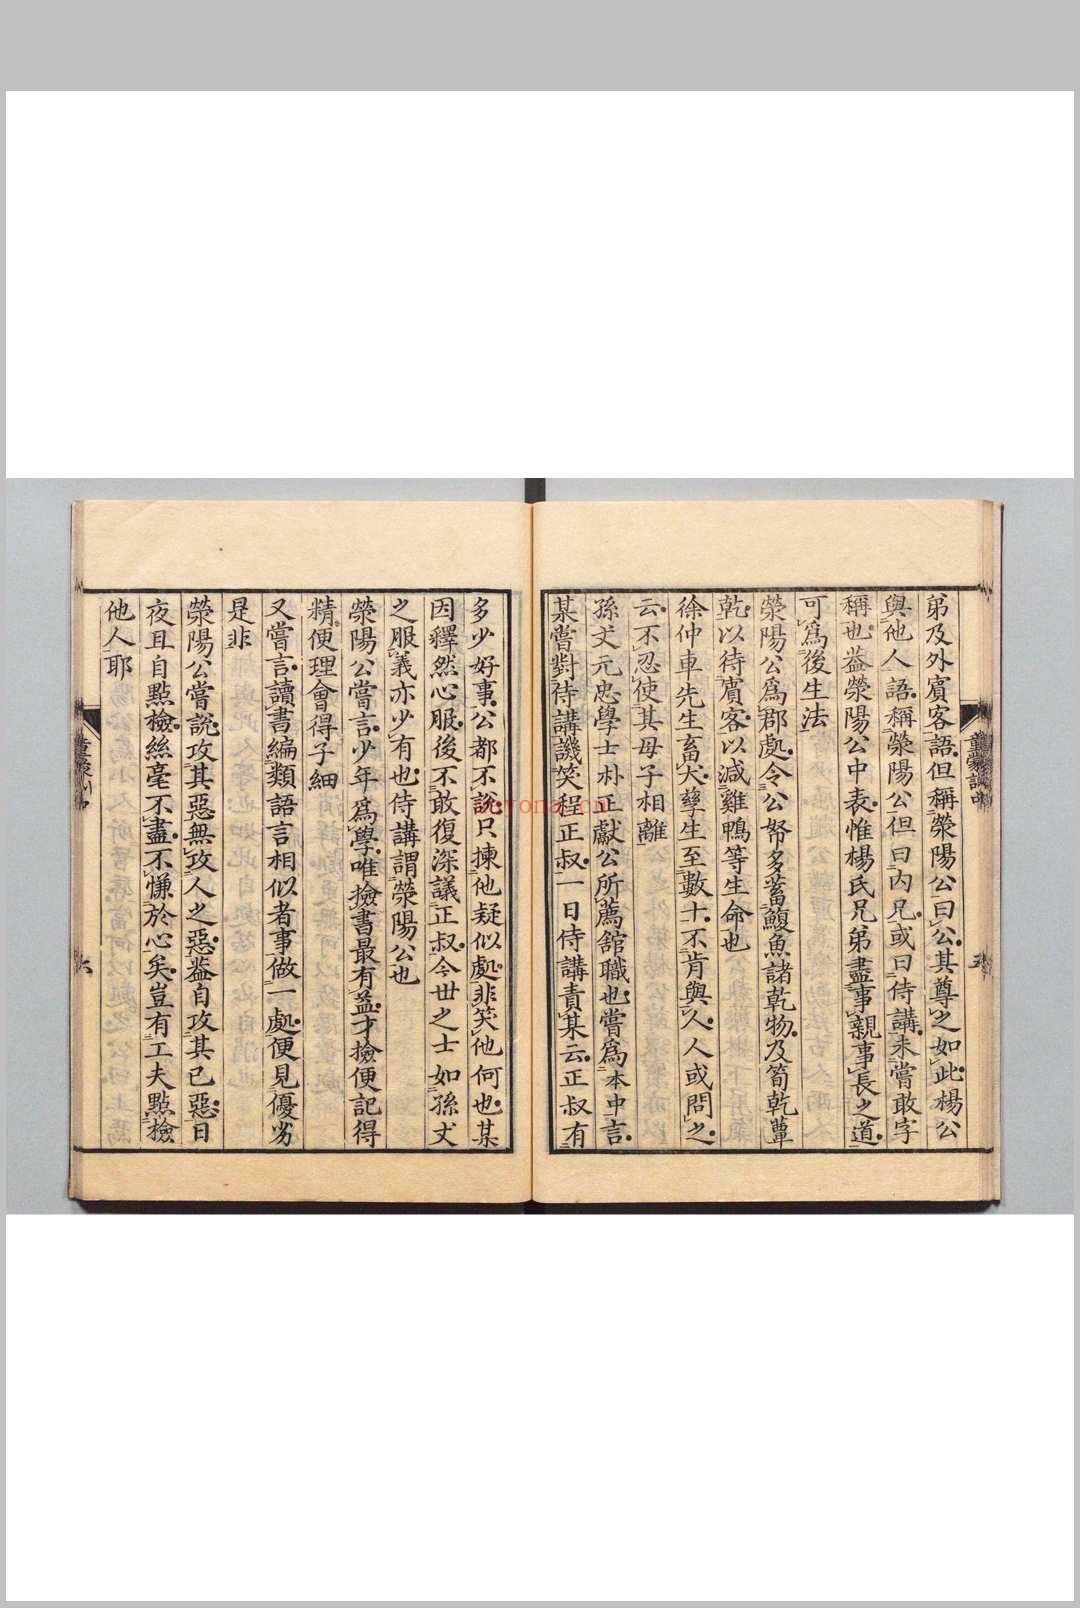 弟及外賓客語但稱滎陽公曰公其尊之如此楊公
與他人語稱滎陽公但曰內兄或曰侍講未嘗敢字
稱也葢滎陽公中表惟楊氏兄弟盡事親事長之道
可爲後生法
滎陽公爲郡處令公帑多蓄鰒魚諸乾物及筍乾蕈
乾以待賓客以減雞鴨等生命也
徐仲車先生畜犬孳生至數十不肯與人人或問之
云不忍使其母子相離
孫丈元忠學士朴正獻公所薦舘職也嘗爲本中言
某嘗對侍講譏笑程正叔一日侍講責某云正叔有
多少好事公都不說只揀他疑似處非笑他何也某
因釋然心服後不敢復深議正叔今世之士如孫丈
之服義亦少有也侍講謂滎陽公也
滎陽公嘗言少年爲學唯撿書最有益才撿便記得
精便理會得子細
又嘗言讀書編類語言相似者事做一處便見優劣
是非
滎陽公嘗說攻其惡無攻人之惡葢自攻其己惡日
夜且自點檢絲毫不盡不慊於心矣豈有工夫點檢
他人耶
童蒙訓中
五
六
beyona.cn